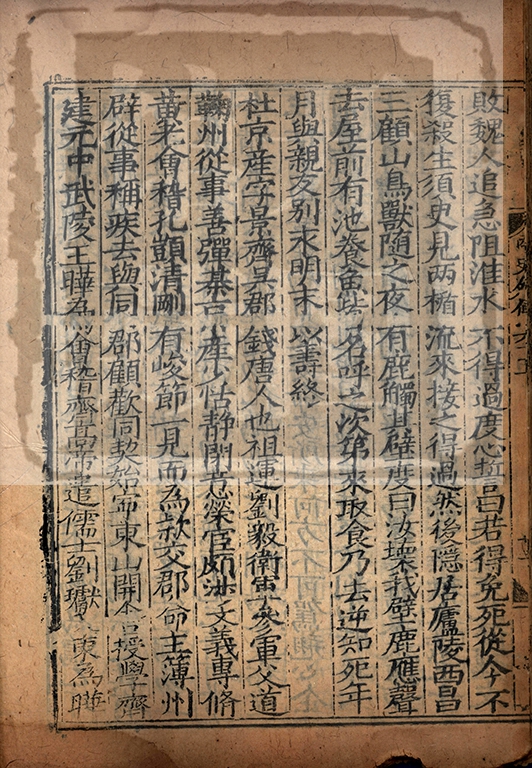 敗魏人追急阻淮水不得過度心誓曰若得免死從今不
復殺生須臾見兩楯流來接之得過然後隱居廬陵西昌
三顧山鳥獸隨之夜有鹿觸其壁度曰汝壞我壁鹿應聲
去屋前有池養魚皆名呼之次第來取食乃去逆知死年
月與親友別永明末以壽終
杜京産字景齊吳郡錢唐人也祖運劉毅衛軍參軍父道
鞠州從事善彈棊京産少恬静閉意榮宦頗涉文義專修
黄老會稽孔顗清剛有峻節一見而為款交郡命主簿州
辟從事稱疾去與同郡顧歡同契始寧東山開舍授學齊
建元中武陵王曄為會稽齊高帝遣儒士劉瓛入東為曄